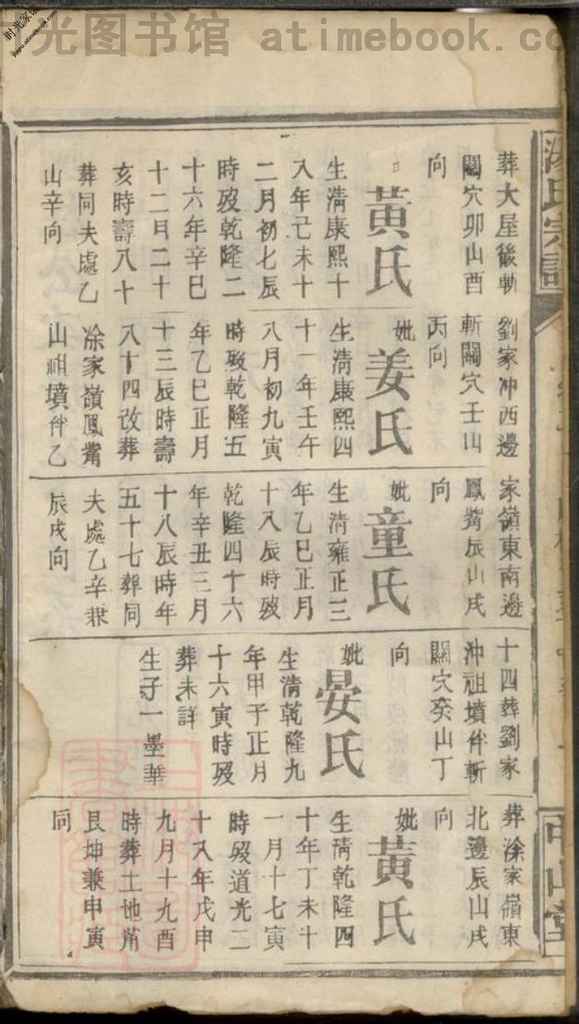 时光图书馆 atimebook.co
葬大屋後斬
關穴卯山酉
向
黃氏
生清康熙十
八年己未十
二月初七辰
時殁乾隆二
十六年辛巳
十二月二十
亥時壽八十
葬同夫處乙
山辛向
劉家冲西邊
斬關穴壬山
丙向
妣
姜氏
生清康熙四
十一年壬午
八月初九寅
時殁乾隆五
年乙巳正月
十三辰時壽
八十四改葬
凃家嶺鳳觜
山祖墳伴乙
家嶺東南邊
鳳觜辰山戌
向
妣
童氏
生清雍正三
年乙巳正月
十八辰時殁
乾隆四十六
年辛丑三月
十八辰時年
五十七葬同
夫處乙辛兼
辰戌向
十四葬劉家
冲祖墳伴斬
關穴癸山丁
向
妣
晏氏
生清乾隆九
年甲子正月
十六寅時殁
葬未詳
生子一墨華
葬凃家嶺東
北邊辰山戌
向
妣
黃氏
生清乾隆四
十年丁未十
一月十七寅
時殁道光二
十八年戊申
九月十九酉
時葬土地凊
艮坤兼申寅
同
氏宗譜
中山堂